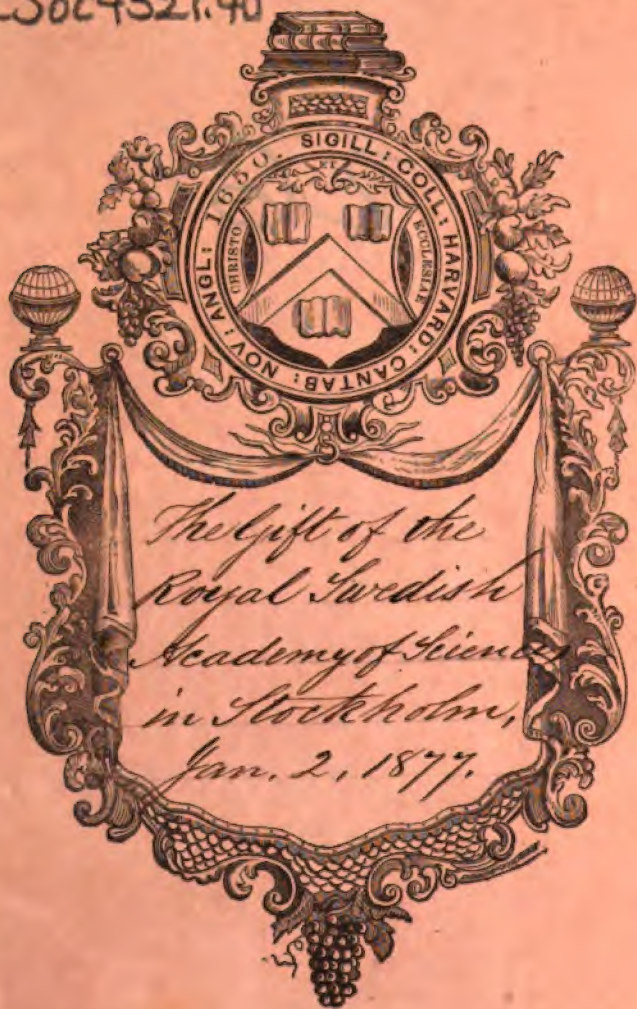 LSoc4521.40
SIGILL: COLL: HARVARD: CANTAB: NOV: ANGL: 1650.
ET
CHRISTO
ECCLESIAE
The Gift of the
Royal Swedish
Academy of Sciences
in Stockholm,
Jan. 2, 1877.